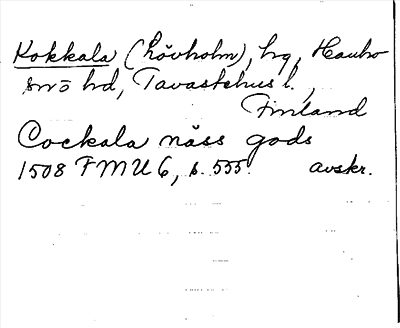 Kokkala (Lövholm), hg, Hauho
sn o hd, Tavastehus l.,
Finland
Cockala näss gods
1508 FMU 6, s. 555. avskr.